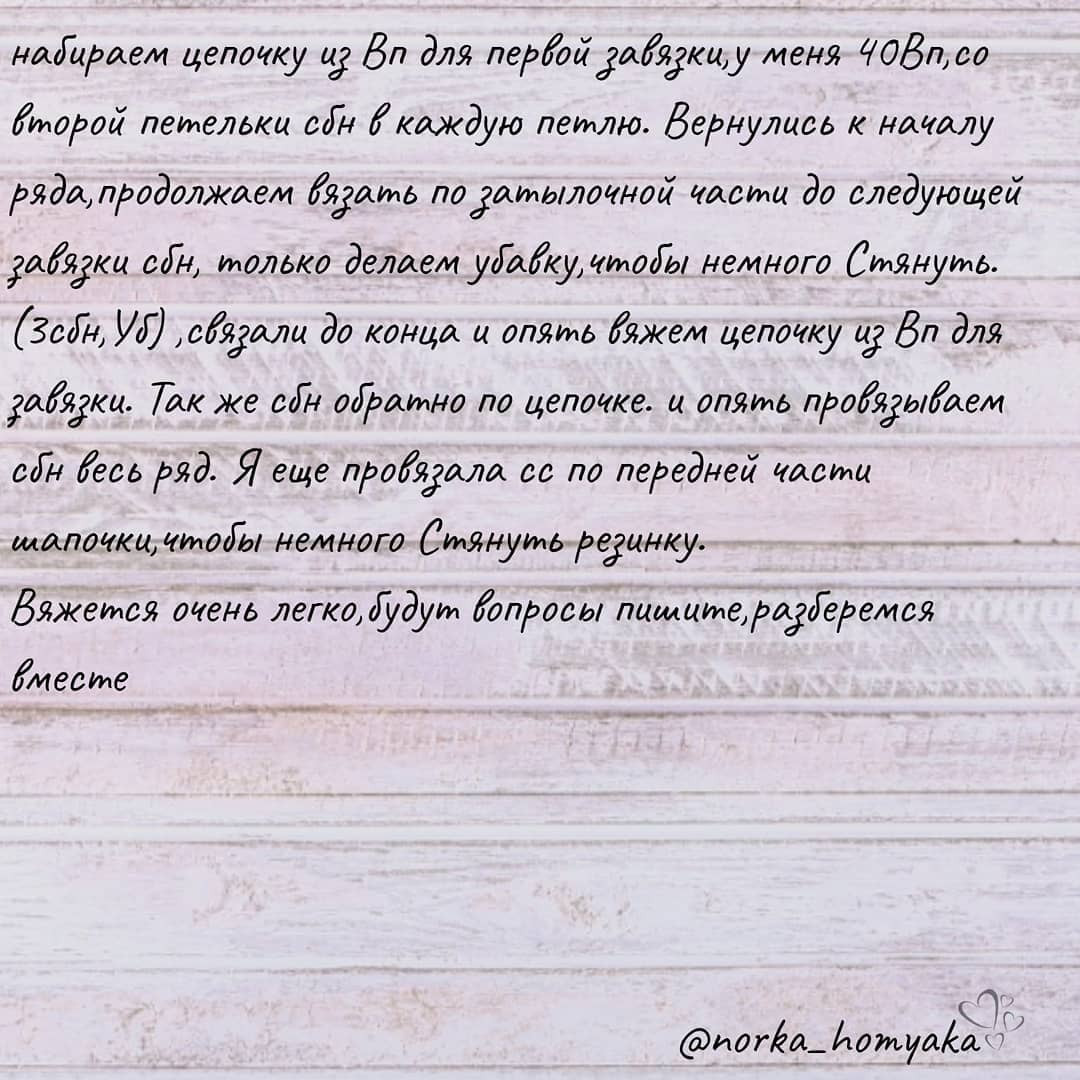 набираем цепочку из Вп для первой завязки,у меня 40Вп,со
второй петельки сбн в каждую петлю. Вернулись к началу
ряда,продолжаем вязать по затылочной части до следующей
завязки сбн, только делаем убавку,чтобы немного Стянуть.
(3сбн,Уб) ,связали до конца и опять вяжем цепочку из Вп для
завязки. Так же сбн обратно по цепочке. и опять провязываем
сбн весь ряд. Я еще провязала сс по передней части
шапочки,чтобы немного Стянуть резинку.
Вяжется очень легко,будут вопросы пишите,разберемся
вместе
@norka_homyaka